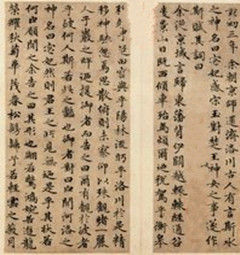 黃初三年余朝京師還濟洛川古人有言斯水
之神名曰宓妃感宋玉對楚王神女之事遂作
斯賦其詞曰
余從京域言歸東藩背伊闕越轘轅經通谷
陵景山日既西傾車殆馬煩爾迺稅駕乎蘅皋
秣駟乎芝田容與乎陽林流眄乎洛川於是精
移神駭忽焉思散俯則未察仰以殊觀睹一麗
人于巖之畔迺援御者而告之曰爾有覿於彼者
乎彼何人斯若此之豔也御者對曰臣聞河洛之
神名曰宓妃然則君王所見無迺是乎其狀若
何臣願聞之余告之曰其形也翩若驚鴻婉若遊龍
榮曜秋菊華茂春松髣髴兮若輕雲之蔽月